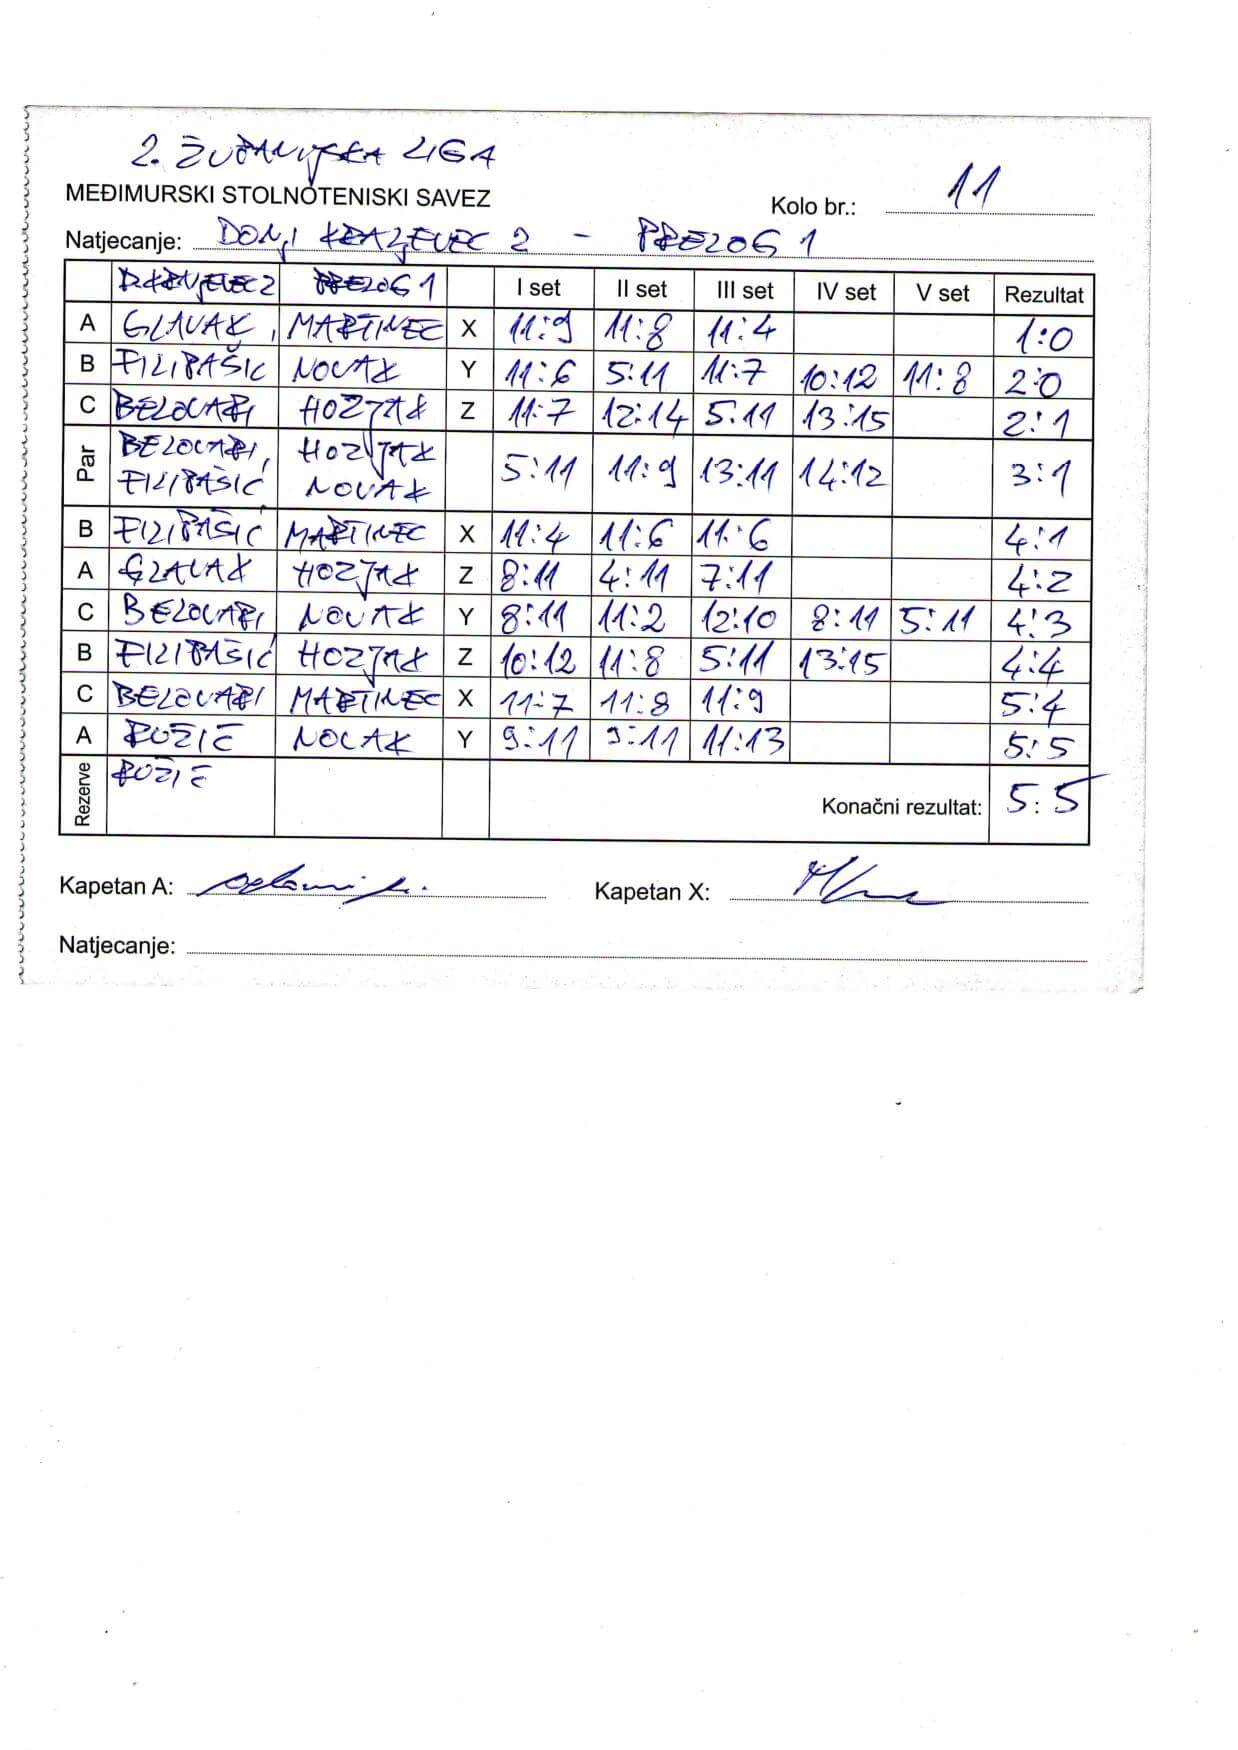 2. ŽUPANIJSKA LIGA
MEĐIMURSKI STOLNOTENISKI SAVEZ
Kolo br.: 11
Natjecanje: DONJI KRALJEVEC 2 - PRELOG 1
D.KRALJEVEC 2 PRELOG 1 I set II set III set IV set V set Rezultat
A GLAVAK, MARTINEC X 11:9 11:8 11:4 1:0
B FILIPAŠIĆ NOVAK Y 11:6 5:11 11:7 10:12 11:8 2:0
C BELOVARI HOZJAK Z 11:7 12:14 5:11 13:15 2:1
Par BELOVARI, HOZJAK 5:11 11:9 13:11 14:12 3:1
FILIPAŠIĆ NOVAK
B FILIPAŠIĆ MARTINEC X 11:4 11:6 11:6 4:1
A GLAVAK HOZJAK Z 8:11 4:11 7:11 4:2
C BELOVARI NOVAK Y 8:11 11:2 12:10 8:11 5:11 4:3
B FILIPAŠIĆ HOZJAK Z 10:12 11:8 5:11 13:15 4:4
C BELOVARI MARTINEC X 11:7 11:8 11:9 5:4
A ROŽIĆ NOVAK Y 9:11 9:11 11:13 5:5
Rezerve ROŽIĆ Konačni rezultat: 5:5
Kapetan A: Kapetan X:
Natjecanje: